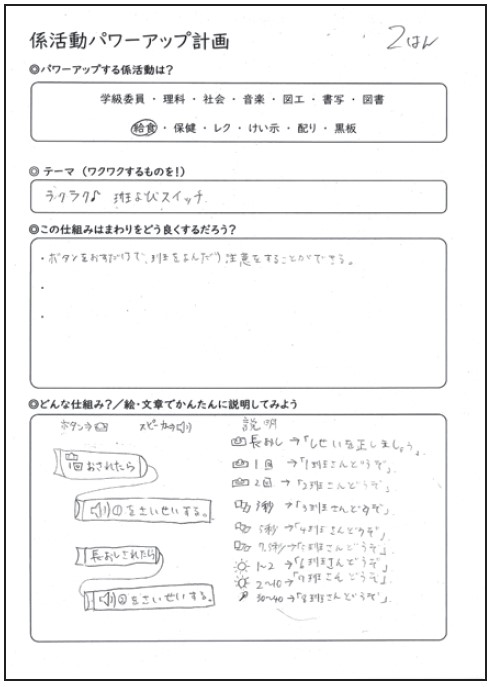 係活動パワーアップ計画
2はん
◎パワーアップする係活動は?
学級委員 ・ 理科 ・ 社会 ・ 音楽 ・ 図工 ・ 書写 ・ 図書
給食 ・ 保健 ・ レク ・ けい示 ・ 配り ・ 黒板
◎ テーマ (ワクワクするものを!)
ラクラク♪ 班よびスイッチ
◎この仕組みはまわりをどう良くするだろう?
・ボタンをおすだけで、班をよんだり注意をすることができる。
・
・
◎どんな仕組み?/絵・文章でかんたんに説明してみよう
ボタン→ スピーカ→ 説明
長おし→「しせいを正しましょう」
1回おされたら
1回 →「1班さんどうぞ」
2回 →「2班さんどうぞ」
①をさいせいする。
3秒 →「3班さんどうぞ」
5秒→「4班さんどうぞ」
長おしされたら
→「5班さんどうぞ」
1~2→「6班さんどうぞ」
2~10→「7班さんどうぞ」
②をさいせいする。
30~40→「8班さんどうぞ」